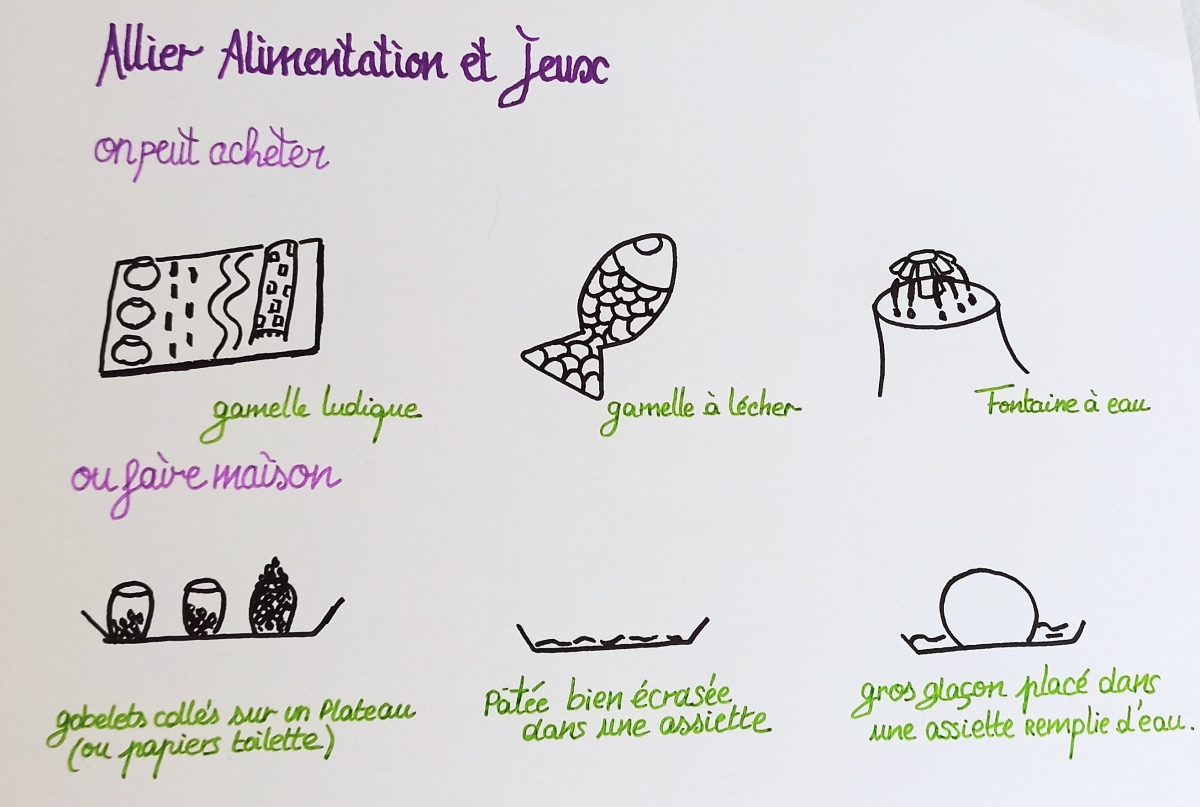 Allier Alimentation et Jeux
on peut acheter
gamelle ludique
gamelle à lécher
Fontaine à eau
ou faire maison
gobelets collés sur un Plateau
(ou papiers toilette)
Pâtée bien écrasée
dans une assiette
gros glaçon placé dans
une assiette remplie d'eau.